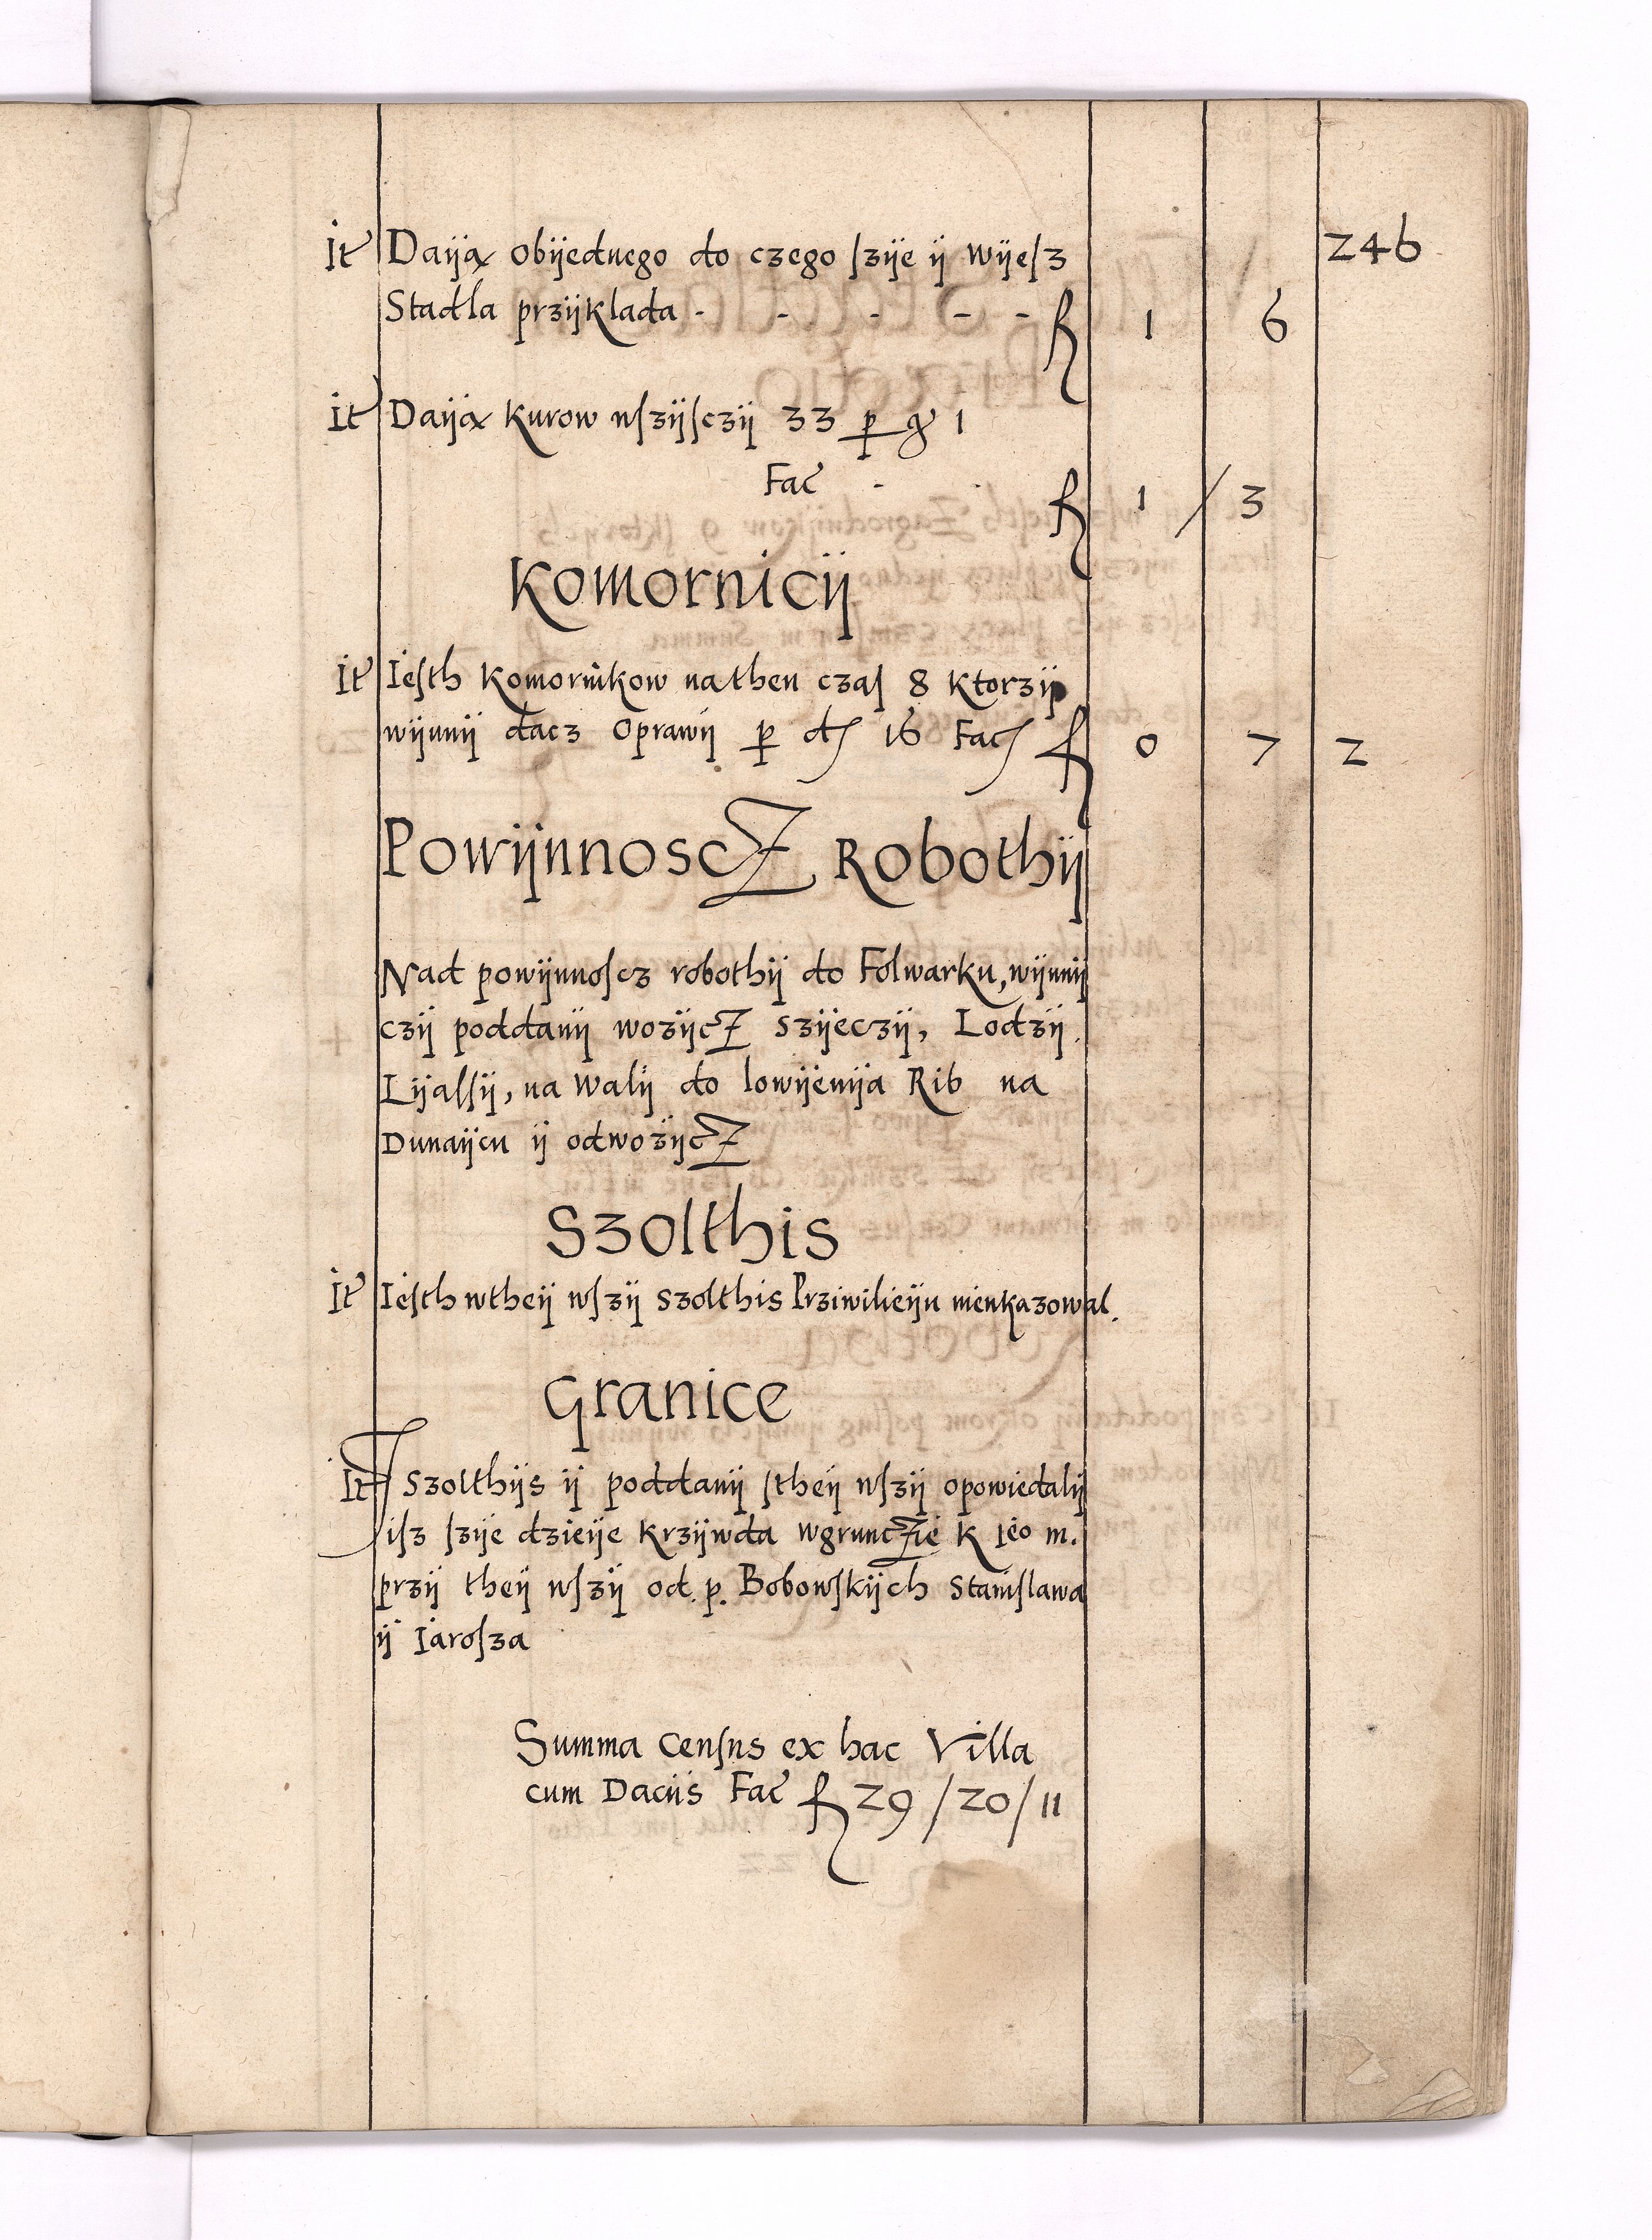 246
It Daiją obijednego do czego szije ij wijesz
Stadla przijklada - - - - - f 1 6
It Daiją Kurow wszijsczij 33 p gr 1
Fac - - f 1 / 3
Komornicij
It Iesth Komornikow nathen czas 8 Ktorzij
wijnnij dacz Oprawij p d 16 Fac f 0 7 2
PowijnnoscZ Robothij
Nad powijnnoscz robothij do Folwarku, wijnnij
czij poddanij wozijcZ szijeczij, Lodzij
Lijassij, na walij do lowijenija Rib na
Dunaijcu ij odwozijcZ
Szolthis
It Iesth wtheij wszij szolthis Prziwilieiju nieukazowal.
Granice
It Szolthijs ij poddanij stheij wszij opowiedalij
isz szije dzieije Krzijwda wgruncZie K Ieo m.
przij theij wszij od. p. Bobowskijch Stanislawa
ij Iarosza
Summa Census ex hac Villa
cum Daciis Fac f 29 / 20 / 11